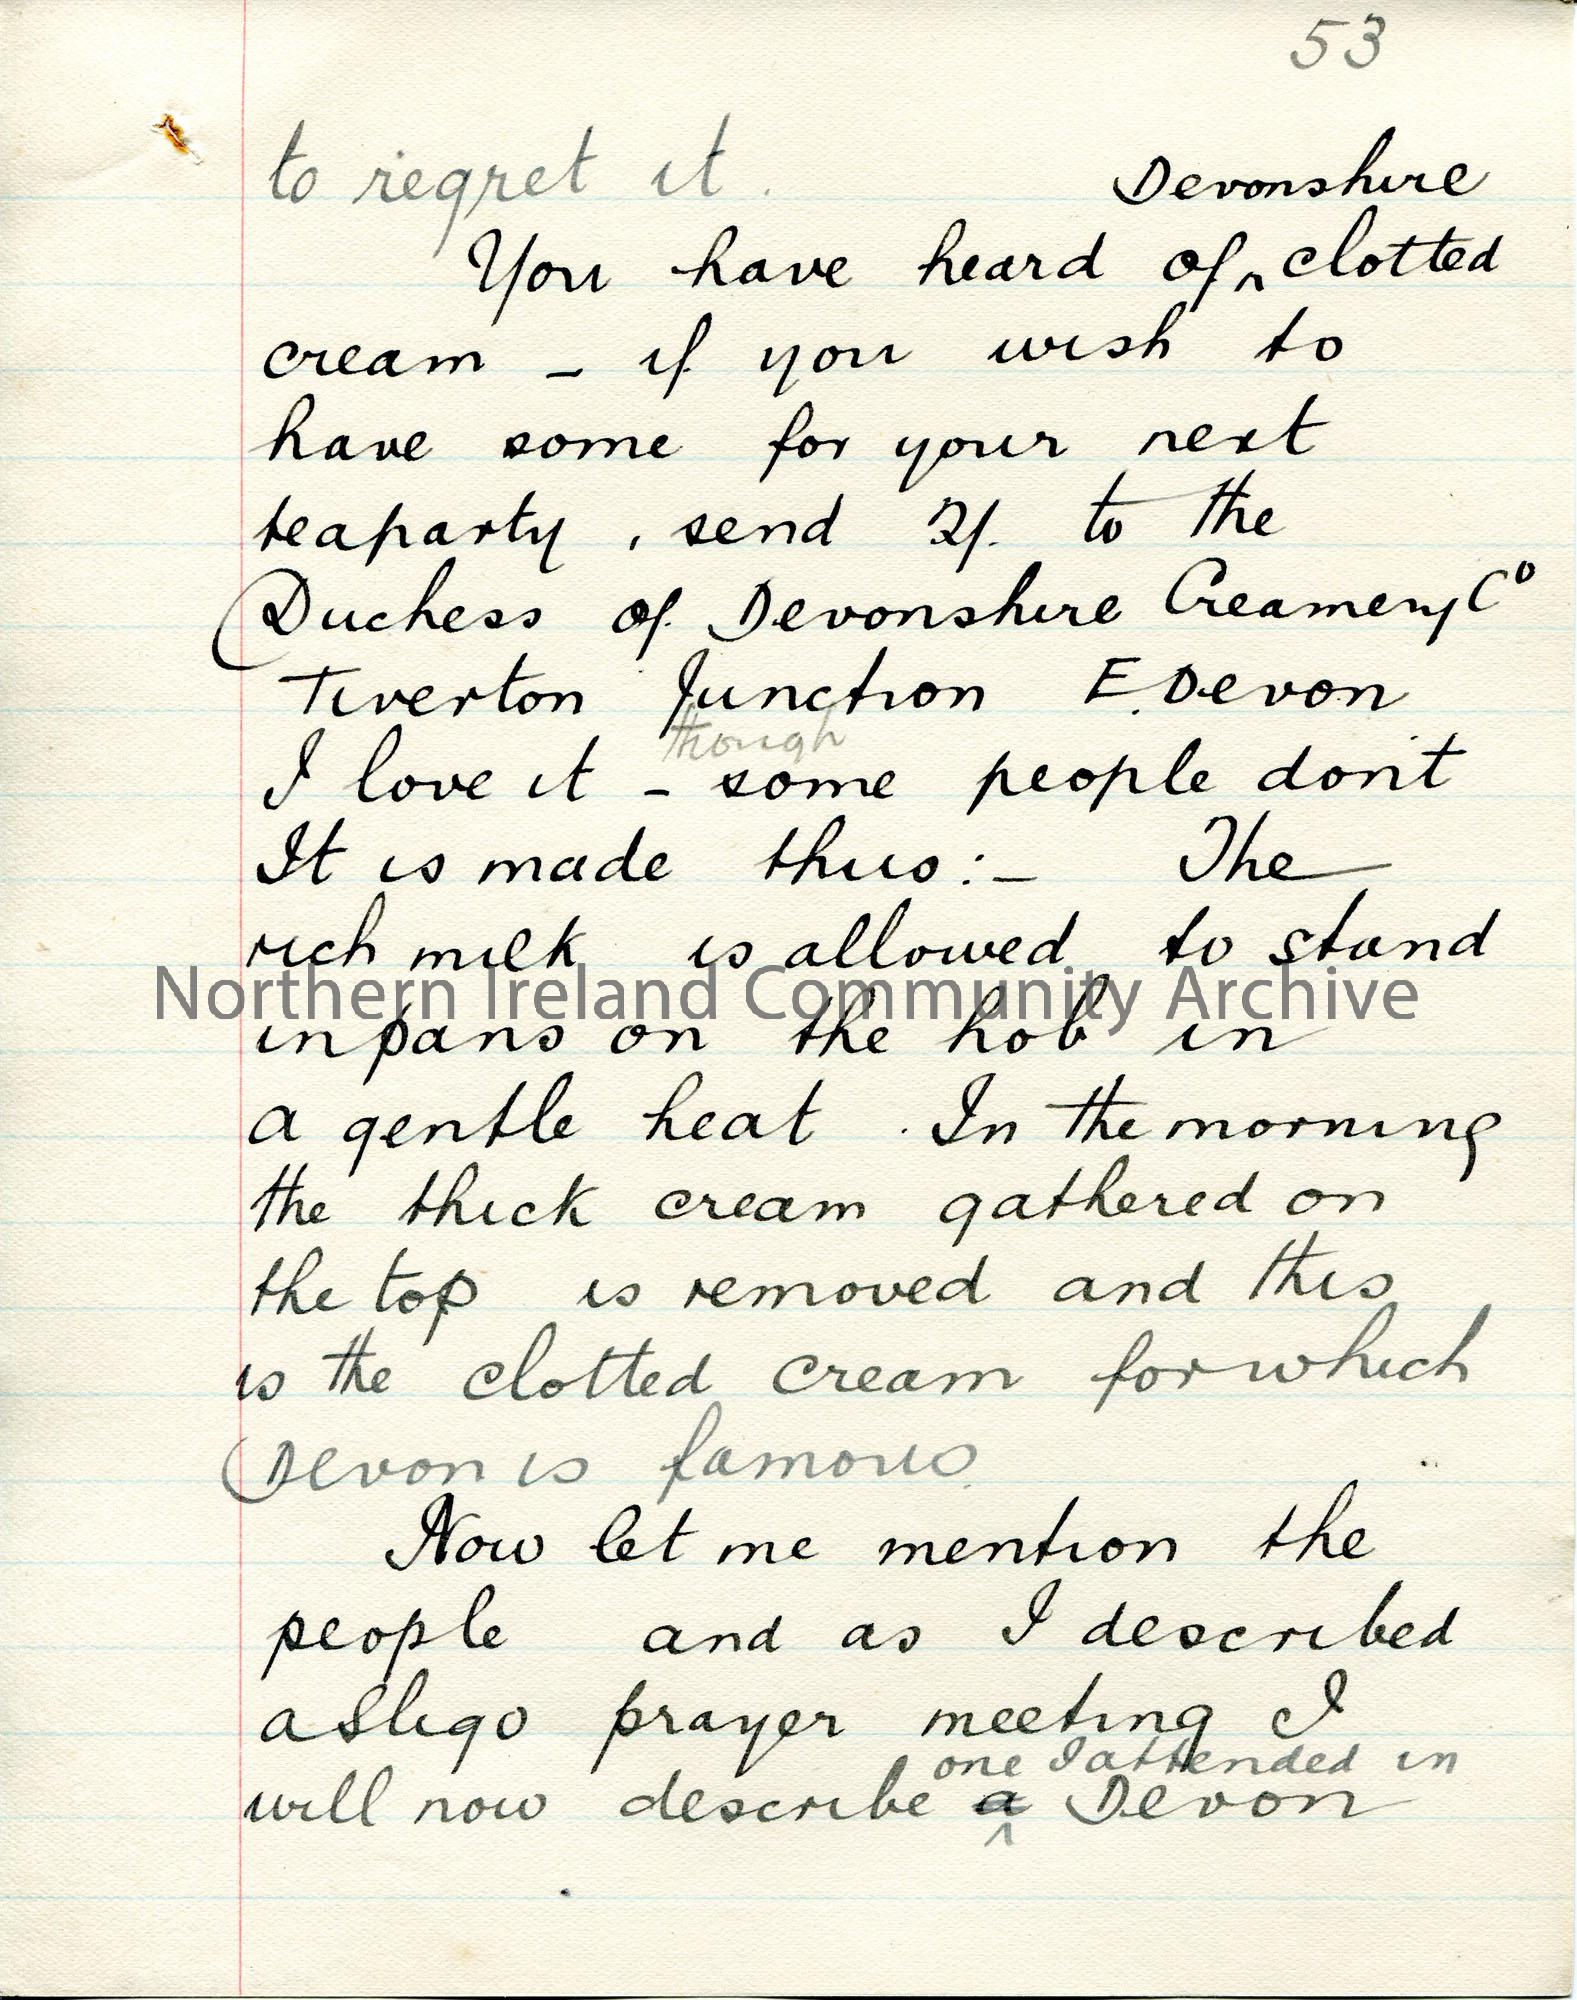 53
to regret it.
Devonshire
You have heard of ‸ clotted
cream – if you wish to
have some for your next
teaparty, send 2/. to the
Duchess of Devonshire Creamery Cº
Tiverton Junction E. Devon
though
I love it – some people don't
It is made thus:– The
rich milk is allowed to stand
Northern Ireland Community Archive
in pans on the hob in
a gentle heat. In the morning
the thick cream gathered on
the top is removed and this
is the clotted cream for which
Devon is famous.
Now let me mention the
people and as I described
a Sligo prayer meeting I
one I attended in
will now describe a Devon